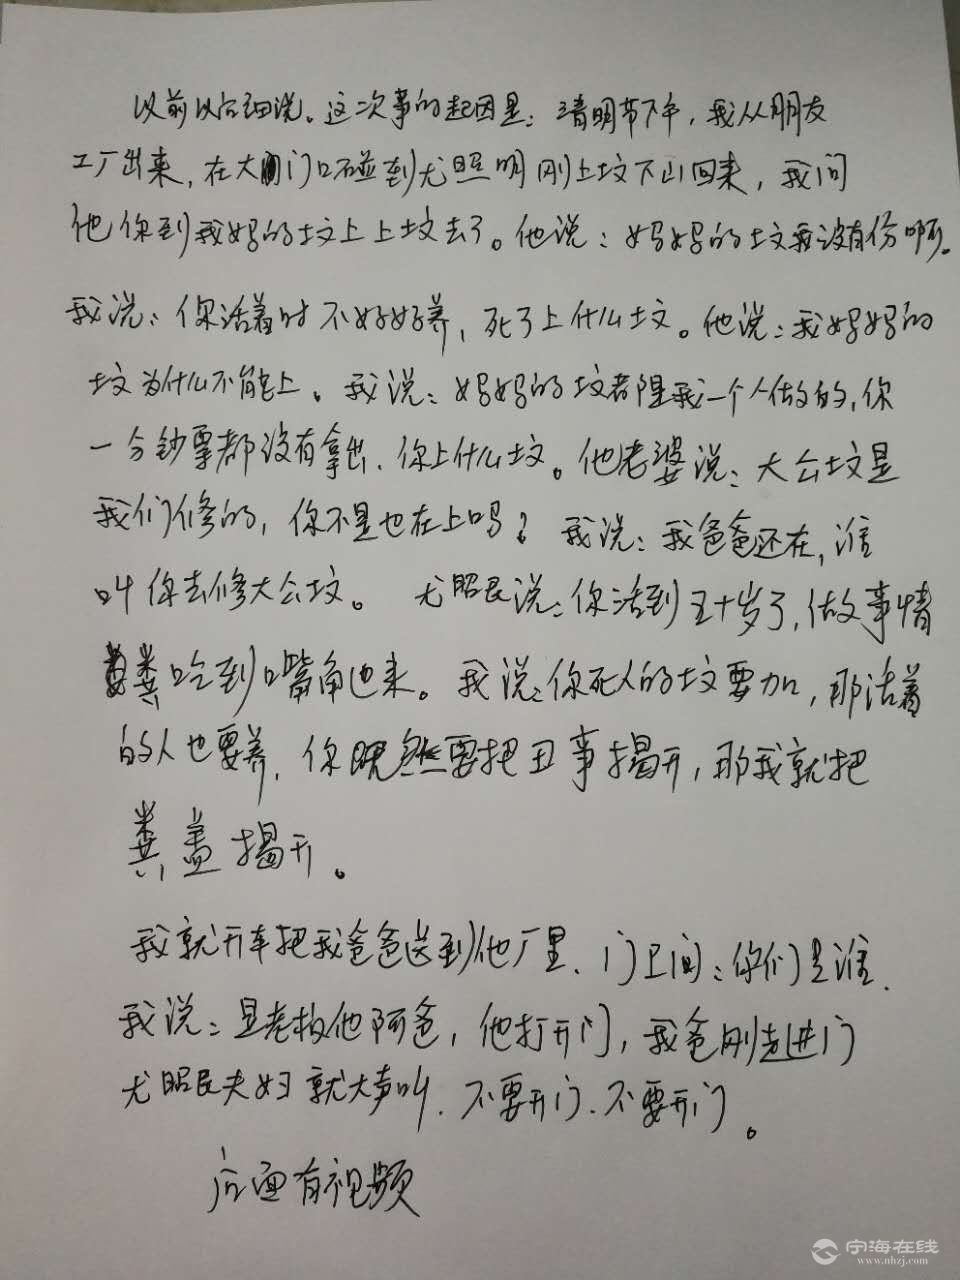 以前以后细说。这次事的起因是：清明节下午，我从朋友
工厂出来，在大门口碰到尤照明刚上坟下山回来，我问
他你到我妈的坟上上坟去了。他说：妈妈的坟我没有份啊。
我说：你活着时不好好养，死了上什么坟。他说：我妈妈的
坟为什么不能上。我说：妈妈的坟都是我一个人做的，你
一分钞票都没有拿出、你上什么坟。他老婆说：大公坟是
我们修的，你不是也在上吗？我说：我爸爸还在，谁
叫你去修大公坟。尤照民说：你活到五十岁了，做事情
粪吃到嘴角边来。我说：你死人的坟要加，那活着
的人也要养，你既然要把丑事揭开，那我就把
粪盖揭开。
我就开车把我爸爸送到他厂里、门卫问：你们是谁.
我说：是老板他阿爸，他打开门，我爸刚走进门
尤照民夫妇就大声叫.不要开门.不要开门。
后面有视频
宁海在线
www.nhzj.com